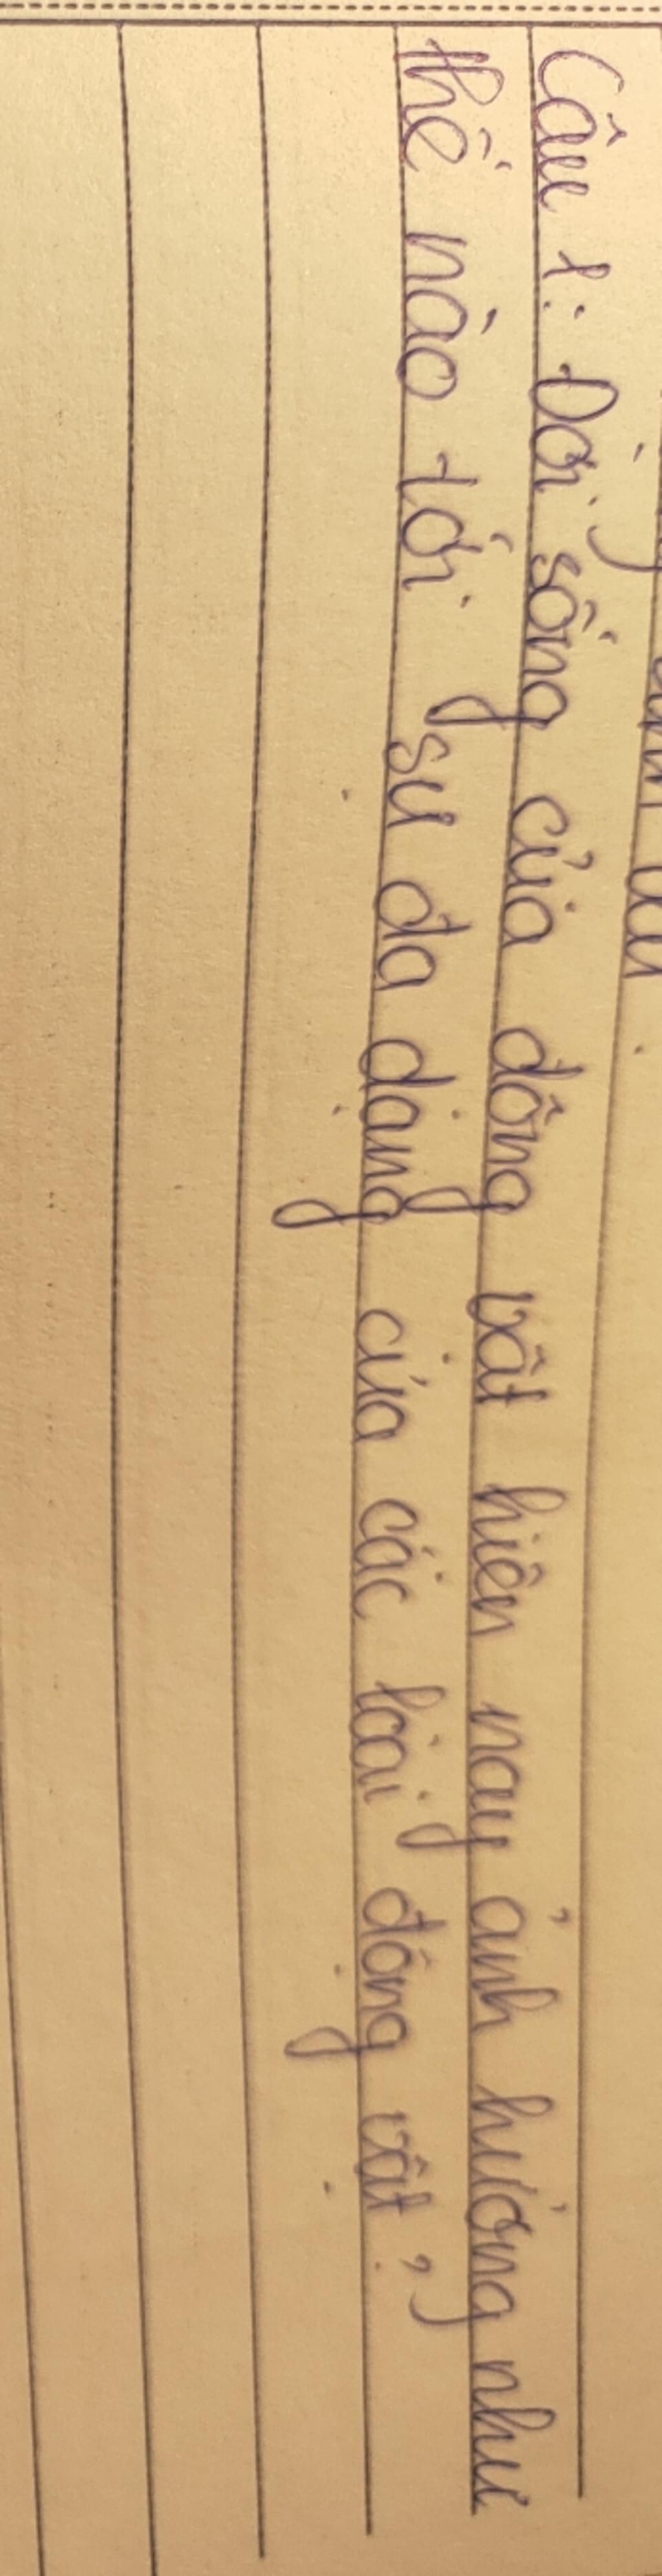 Câu 1: Đời sống của động vật hiện nay ảnh hưởng như
thế nào tới sự đa dạng của các loài động vật?